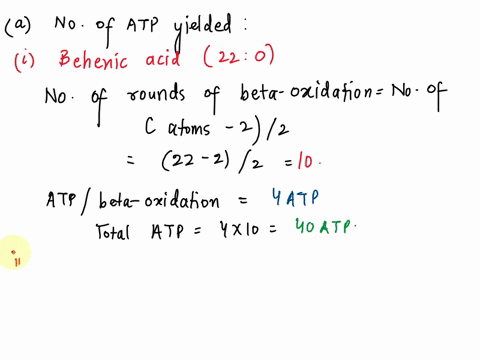 (a) No. of ATP yielded:
(i) Behenic acid (22:0)
No. of rounds of beta-oxidation = No. of
C atoms - 2)/2
= (22-2)/2 = 10.
ATP/beta-oxidation = 4ATP
Total ATP = 4×10 = 40ATP.